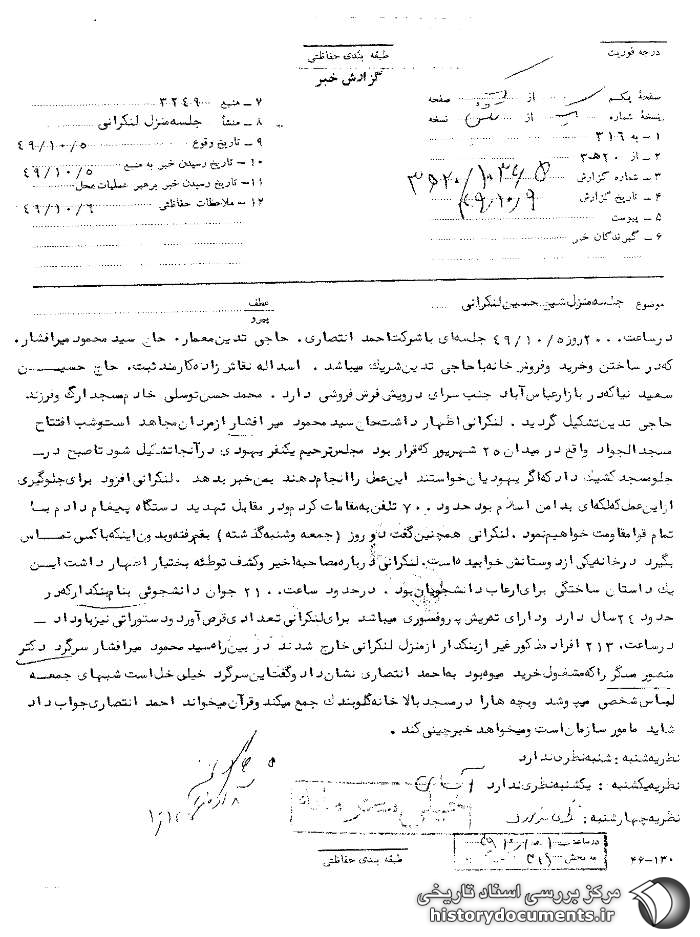 درجه فوریت
طبقه بندی حفاظتی
گزارش خبر
صفحه یکم از صفحه
نسخه شماره از نسخه
۱ - به ۳۱۶
۲ - از ۲۰ ه ۳
۳ - شماره گزارش
۴ - تاریخ گزارش ۴۹/۱۰/۹
۵ - پیوست
۶ - گیرندگان خبر
۷ - منبع ۳۲۴۹
۸ - منشأ جلسه منزل لنکرانی
۹ - تاریخ وقوع ۴۹/۱۰/۵
۱۰ - تاریخ رسیدن خبر به منبع ۴۹/۱۰/۵
۱۱ - تاریخ رسیدن خبر برهبر عملیات محل
۱۲ - ملاحظات حفاظتی ۴۹/۱۰/۶
موضوع جلسه منزل شیخ حسین لنکرانی
عطف
پیرو
در ساعت ۲۰۰۰ روز ۴۹/۱۰/۵ جلسه‌ای با شرکت احمد انتصاری، حاجی تدین معمار، حاج سید محمود میرافشار،
که در ساختن و خرید و فروش خانه با حاجی تدین شریک میباشد . اسداله نقاش زاده کارمند ثبت، حاج حسیــن
سعید نیا که در بازار عباس آباد جنب سرای درویش فرش فروشی دارد . محمد حسن توسلی خادم مسجد ارگ و فرزند
حاجی تدین تشکیل گردید . لنکرانی اظهار داشت حاج سید محمود میرافشار از مردان مجاهد است و شب افتتاح
مسجد الجواد واقع در میدان ۲۵ شهریور که قرار بود مجلس ترحیم یکنفر یهودی در آنجا تشکیل شود تا صبح در
جلو مسجد کشیک داد که اگر یهودیان خواستند این عمل را انجام دهند بمن خبر بدهد . لنکرانی افزود برای جلوگیری
از این عمل که لکه‌ای بدامن اسلام بود حدود ۷۰۰ تلفن به مقامات کردم و در مقابل تهدید دستگاه پیغام دادم بـا
تمام قوا مقاومت خواهیم نمود . لنکرانی همچنین گفت دو روز (جمعه و شنبه گذشته) بقم رفته و بدون اینکه با کسی تمــاس
بگیرد در خانه یکی از دوستانش خوابیده است. لنکرانی درباره مصاحبه اخیر و کشف توطئه بختیار اظهار داشت ایــن
یک داستان ساختگی برای ارعاب دانشجویان بود . در حدود ساعت ۲۱۰۰ جوان دانشجوئی بنام ینکدار که در
حدود ۲۴ سال دارد و دارای ته ریش پروفسوری میباشد برای لنکرانی تعدادی قرص آورد و دستوراتی نیز باو داد ـ
در ساعت ۲۱۳۰ افراد مذکور غیر از ینکدار از منزل لنکرانی خارج شدند در بین راه سید محمود میرافشار سرگرد دکتر
منصور را که مشغول خرید میوه بود به احمد انتصاری نشان داد و گفت این سرگرد خیلی خل است شبهای جمعــه
لباس شخصی میپوشد و بچه ها را در مسجد بالا خانه گلوبندک جمع میکند و قرآن میخواند احمد انتصاری جواب داد
شاید مامور سازمان است و میخواهد خبر چینی کند .
نظریه شنبه : شنبه نظری ندارد
نظریه یکشنبه : یکشنبه نظری ندارد
نظریه چهارشنبه :
۴۶-۱۳۰
طبقه بندی حفاظتی
مرکز بررسی اسناد تاریخی
historydocuments.ir